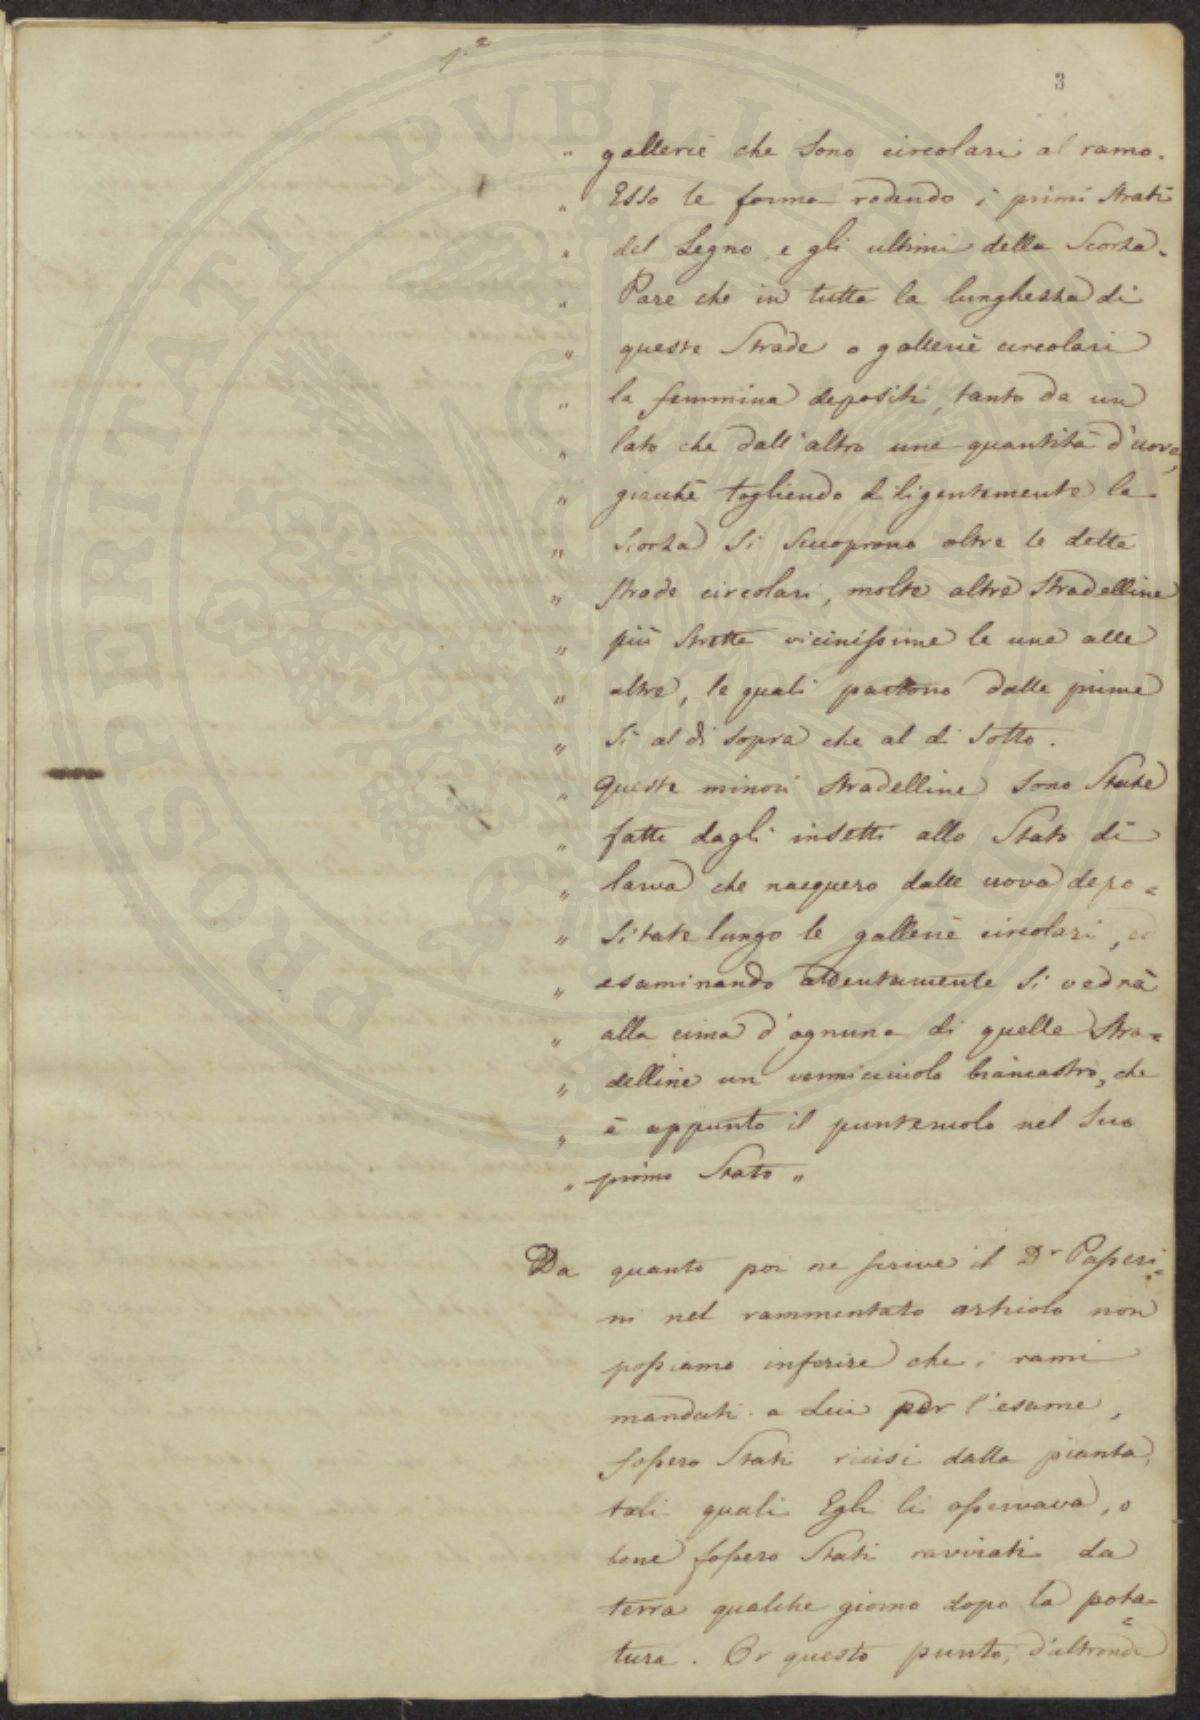 1.2
3
" gallerie che sono circolari al ramo.
" Esso le forma rodendo i primi strati
" del Legno, e gli ultimi della Scorza.
" Pare che in tutta la lunghezza di
" queste Strade o gallerie circolari
" la femmina depositi, tanto da un
" lato che dall'altro una quantità d'uova,
" giacchè togliendo diligentemente la
" Scorza si scuoprono oltre le dette
" strade circolari, molte altre stradelline
" più strette vicinissime le une alle
" altre, le quali partono dalle prime
" Sì al di sopra che al di sotto.
" Queste minori stradelline sono state
" fatte dagli insetti allo Stato di
" larva che nacquero dalle uova depo=
" sitate lungo le gallerie circolari, ed
" esaminando attentamente si vedrà
" alla cima d'ognuna di quelle stra=
" delline un vermicciuolo biancastro, che
" è appunto il punteruolo nel suo
" primo Stato "
Da quanto poi ne scrive il Dr Passeri=
ni nel rammentato articolo non
possiamo inferire che i rami
mandati a Lui per l'esame,
fossero Stati recisi dalla pianta,
tali quali Egli li osservava, o
bene fossero Stati ravviati da
terra qualche giorno dopo la pota=
tura. Or questo punto, d'altronde
PROSPERITATI PUBLICAE